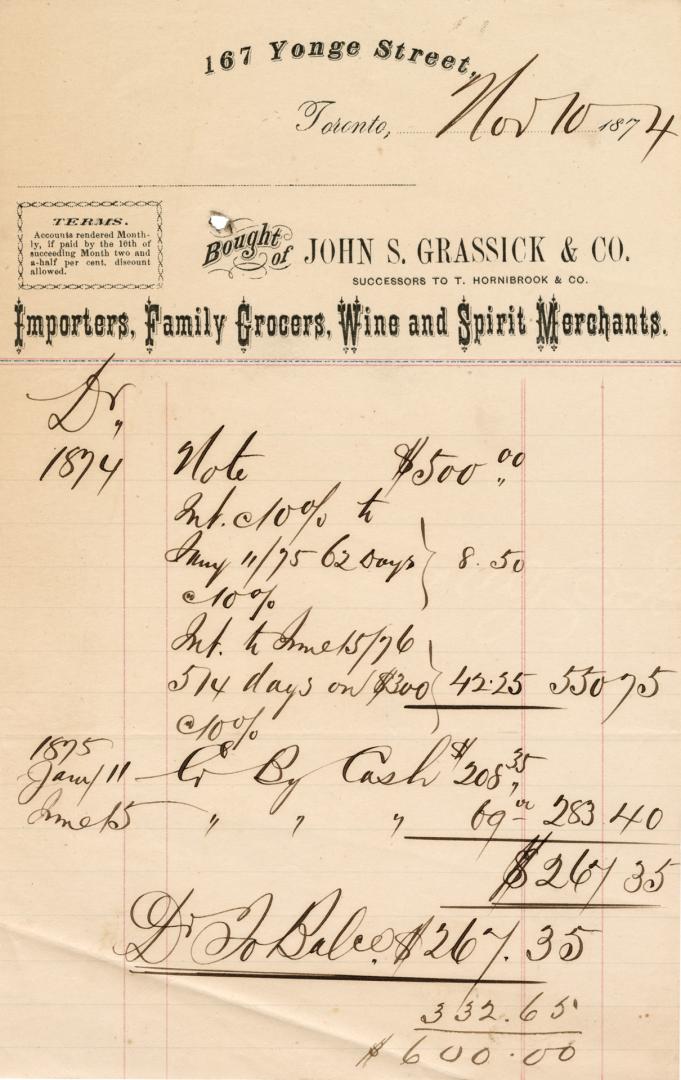 167 Yonge Street,
Toronto, Nov 10 1874
TERMS.
Accounts rendered Month-
ly, if paid by the 10th of
succeeding Month two and
a-half per cent. discount
allowed.
Bought of JOHN S. GRASSICK & CO.
SUCCESSORS TO T. HORNIBROOK & CO.
Importers, Family Grocers, Wine and Spirit Merchants.
Dr,,
1874 Note $500 00
Int. @ 10% to
Jany 11/75 62 Days 8.50
@ 10%
Int. to June 15/76
514 days on $300 42.25 550 75
@ 10%
1875
Jany 11 Cr By Cash $208,35
June 15 " " " 69 00 283 40
$267 35
Dr To Balce. $267.35
332.65
$600.00